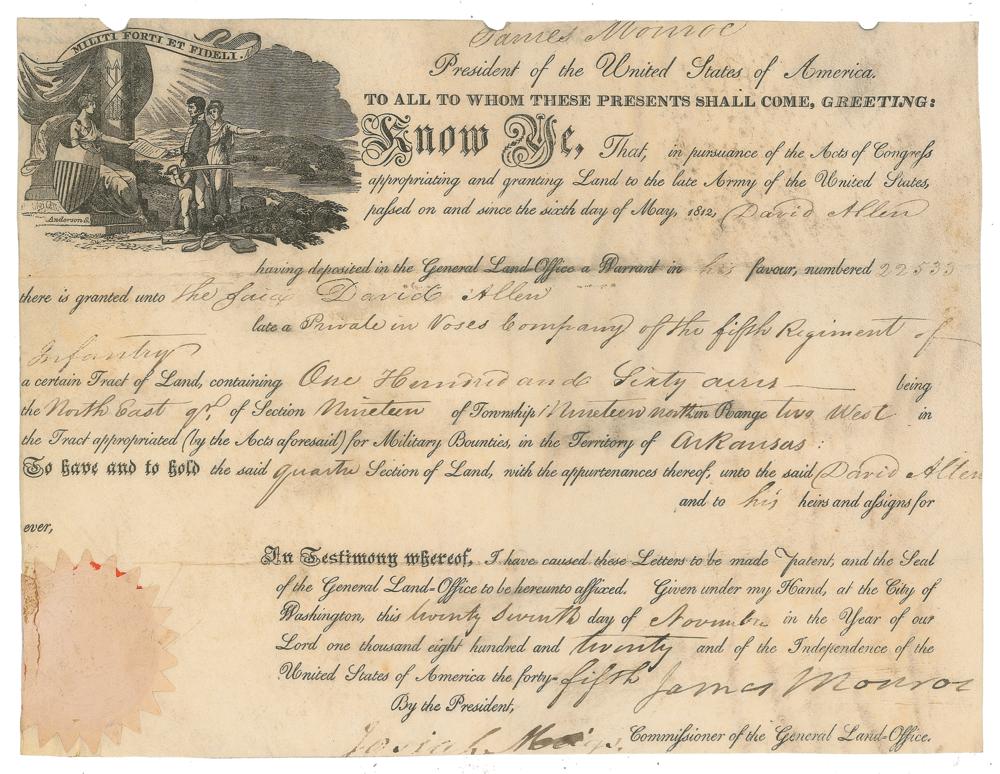 MILITI FORTI ET FIDELI.
James Monroe
President of the United States of America.
TO ALL TO WHOM THESE PRESENTS SHALL COME, GREETING:
Know Ye, That, in pursuance of the Acts of Congress
appropriating and granting Land to the late Army of the United States,
passed on and since the sixth day of May, 1812, David Allen
Anderson S.
having deposited in the General Land-Office a Warrant in his favour, numbered 22533
there is granted unto the said David Allen
late a Private in Voses Company of the fifth Regiment of
Infantry
a certain Tract of Land, containing One Hundred and Sixty acres being
the North East qr. of Section Nineteen of Township Nineteen north in Range two West in
the Tract appropriated (by the Acts aforesaid) for Military Bounties, in the Territory of Arkansas:
To have and to hold the said quarter Section of Land, with the appurtenances thereof, unto the said David Allen
and to his heirs and assigns for
ever,
In Testimony whereof, I have caused these Letters to be made Patent, and the Seal
of the General Land-Office to be hereunto affixed. Given under my Hand, at the City of
Washington, this twenty seventh day of November in the Year of our
Lord one thousand eight hundred and twenty and of the Independence of the
United States of America the forty-fifth James Monroe
By the President,
Josiah Meigs. Commissioner of the General Land-Office.